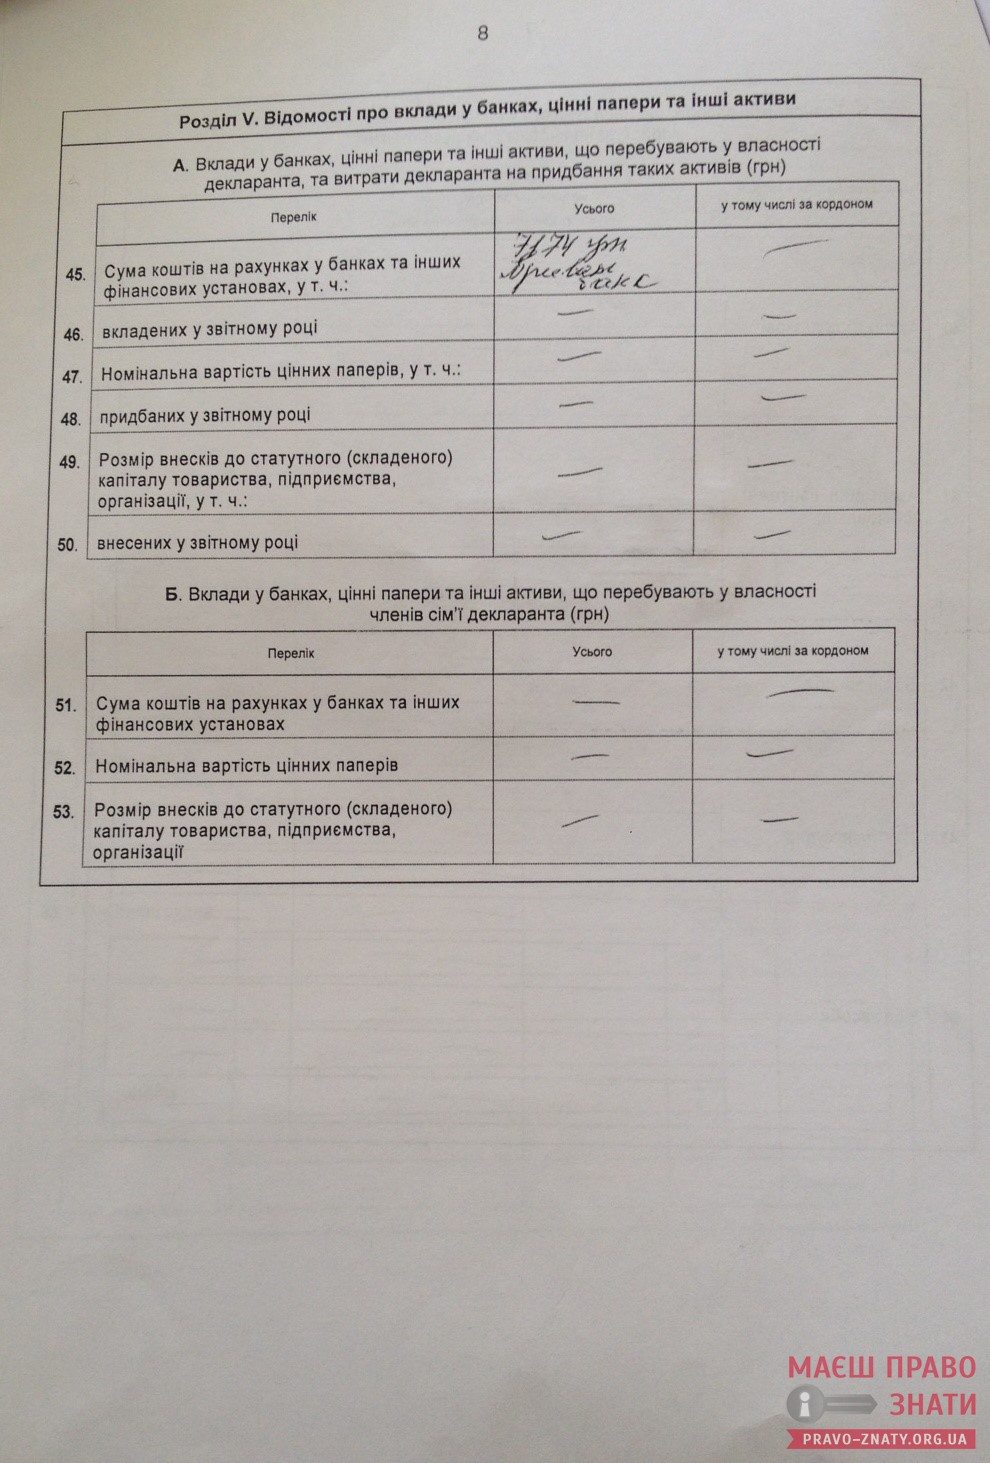 8
Розділ V. Відомості про вклади у банках, цінні папери та інші активи
А. Вклади у банках, цінні папери та інші активи, що перебувають у власності
декларанта, та витрати декларанта на придбання таких активів (грн)
Перелік
Усього
у тому числі за кордоном
45. Сума коштів на рахунках у банках та інших
фінансових установах, у т. ч.:
грн
—
46. вкладених у звітному році — —
47. Номінальна вартість цінних паперів, у т. ч.: — —
48. придбаних у звітному році — —
49. Розмір внесків до статутного (складеного)
капіталу товариства, підприємства,
організації, у т. ч.:
— —
50. внесених у звітному році — —
Б. Вклади у банках, цінні папери та інші активи, що перебувають у власності
членів сім’ї декларанта (грн)
Перелік
Усього
у тому числі за кордоном
51. Сума коштів на рахунках у банках та інших
фінансових установах
— —
52. Номінальна вартість цінних паперів — —
53. Розмір внесків до статутного (складеного)
капіталу товариства, підприємства,
організації
— —
МАЄШ ПРАВО
ЗНАТИ
PRAVO-ZNATY.ORG.UA